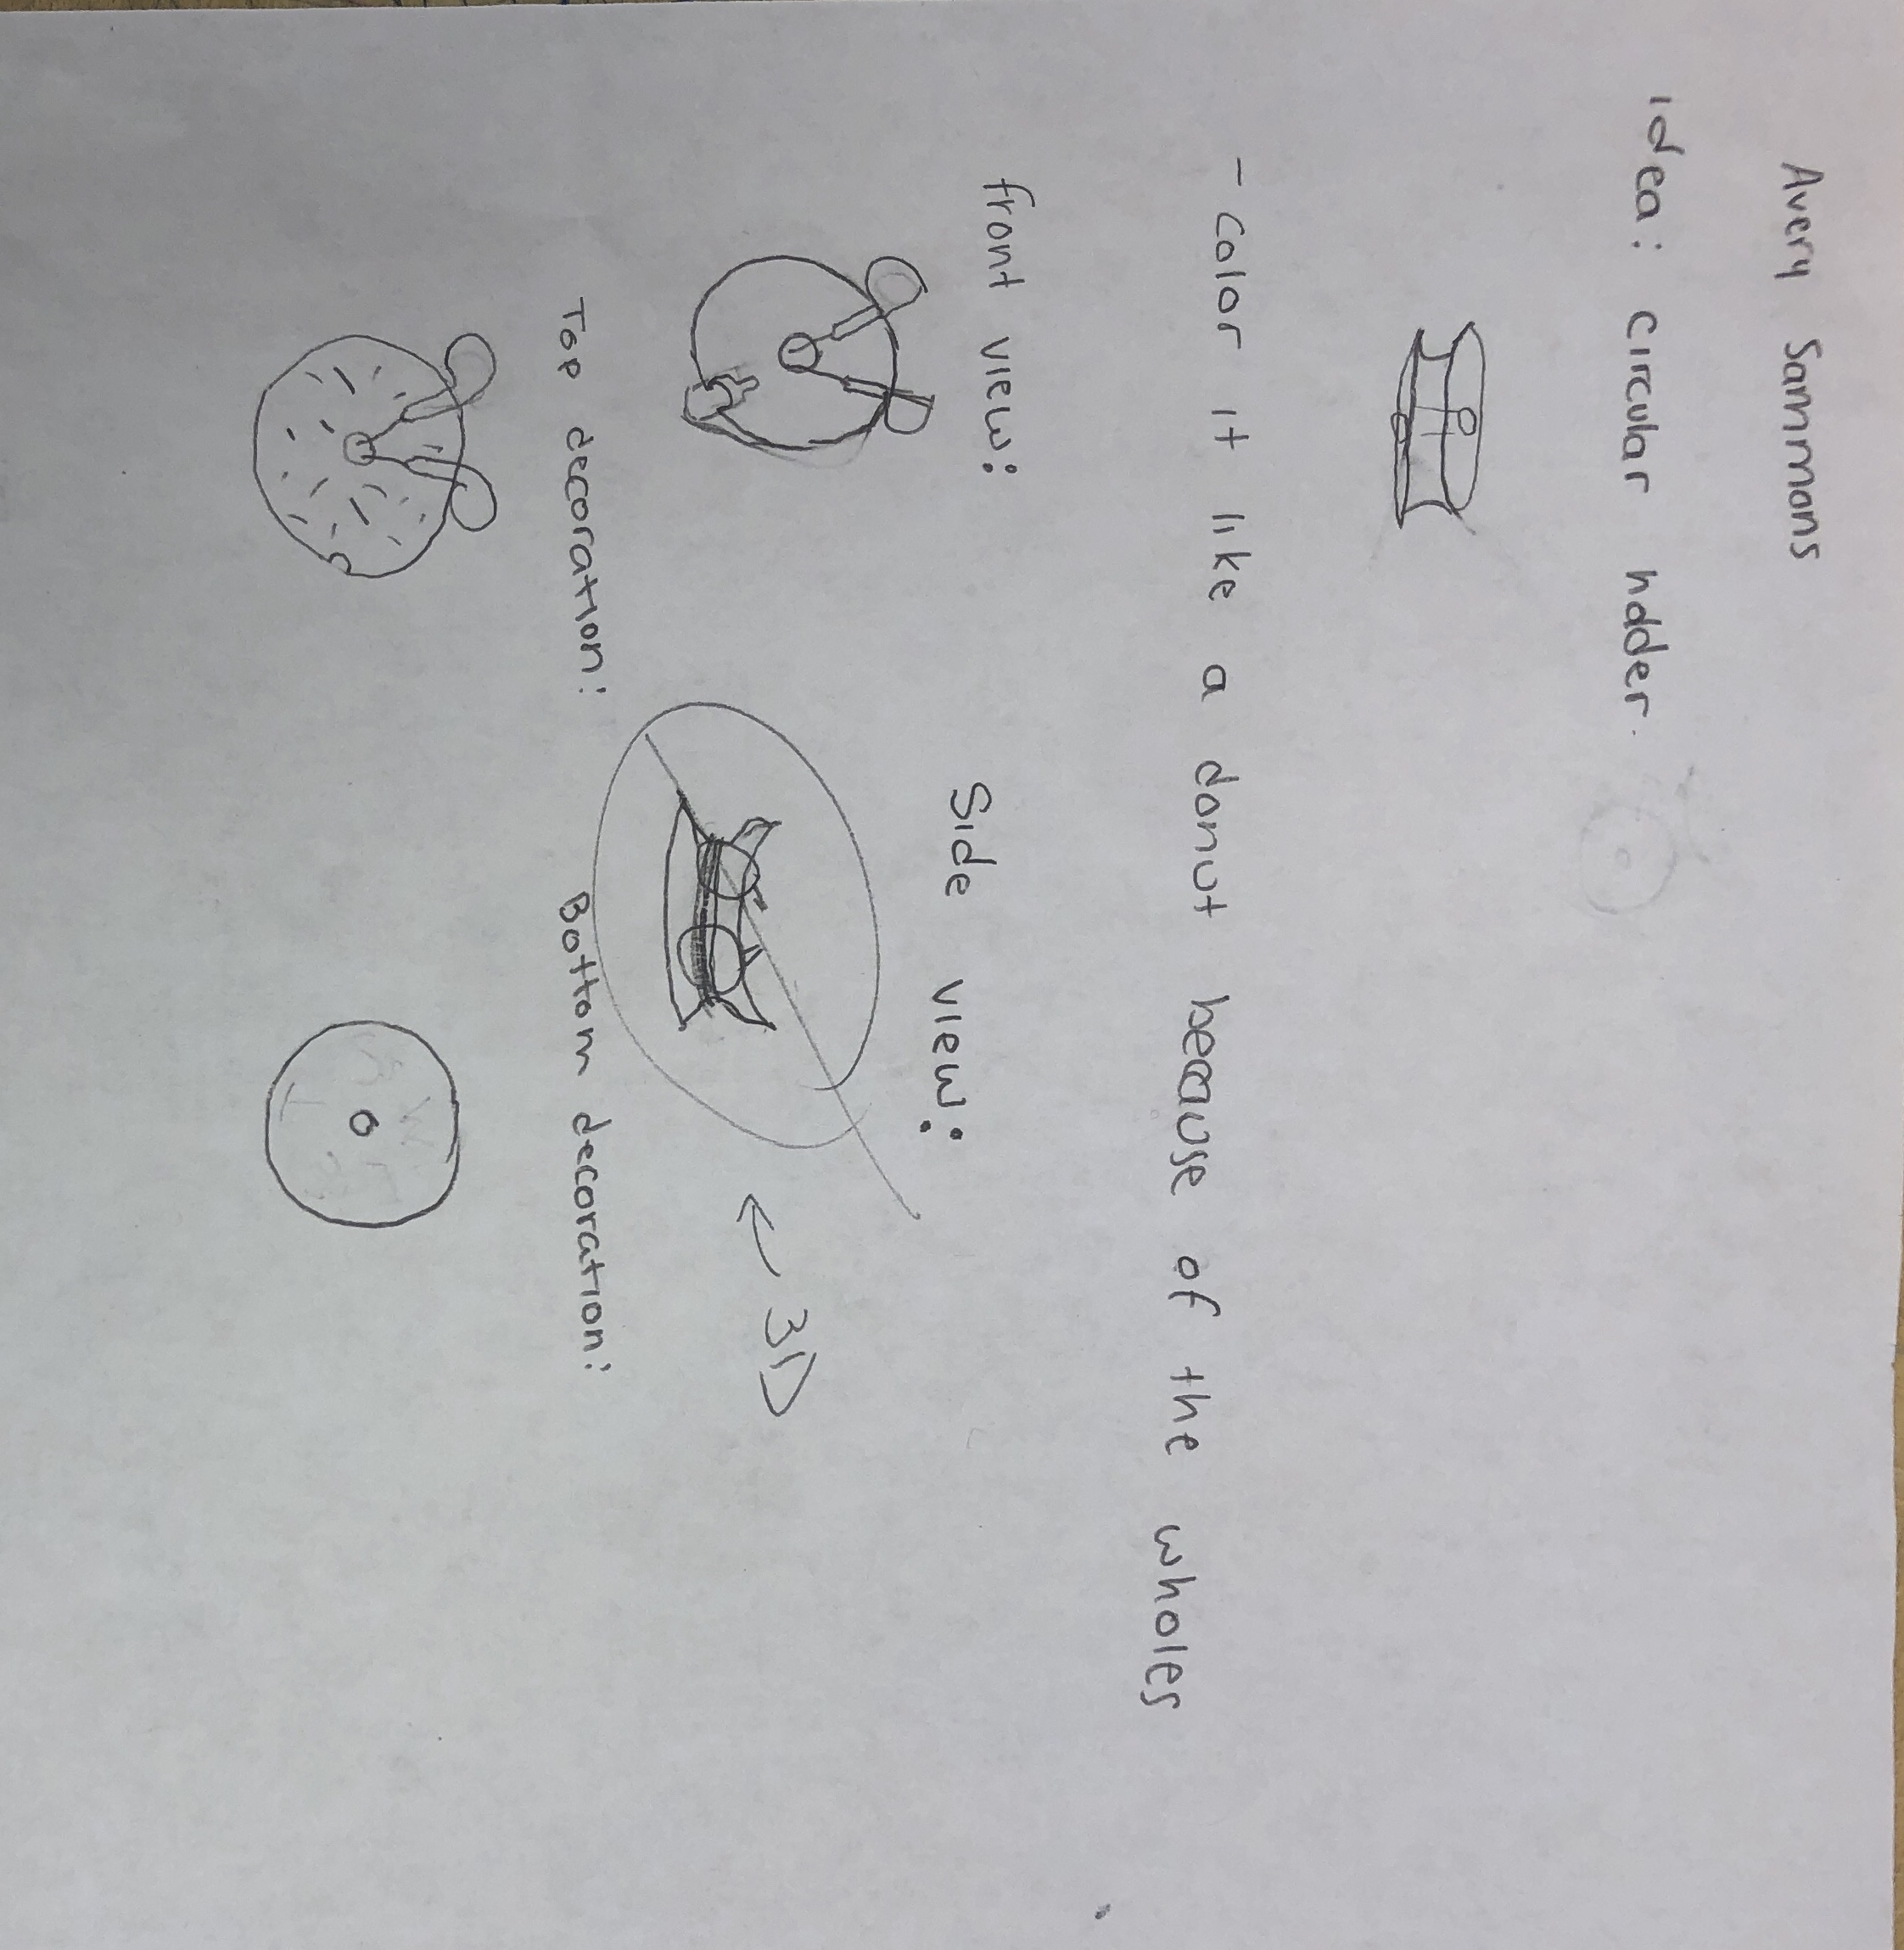 Avery Sammons
idea: circular holder.
- color it like a donut because of the wholes
front view:
Side view:
← 3D
Top decoration:
Bottom decoration: